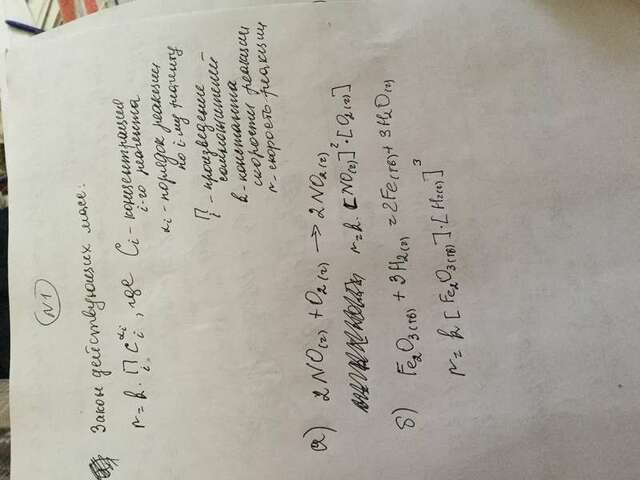 N1
Закон действующих масс:
r=k·∏ᵢ Cᵢ^αᵢ, где Cᵢ - концентрация
i-го реагента
αᵢ - порядок реакции
по i-му реагенту
∏ᵢ - произведение
k - константа
скорости реакции
r - скорость реакции
а) 2NO(г) + O₂(г) → 2NO₂(г)
r=k·[NO(г)]²·[O₂(г)]
б) Fe₂O₃(тв) + 3H₂(г) = 2Fe(тв) + 3H₂O(г)
r=k[Fe₂O₃(тв)]·[H₂(г)]³